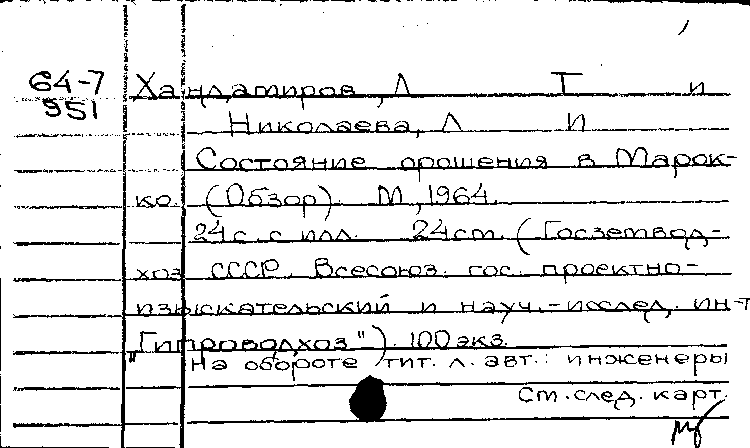 64-7 Хандамиров, Л Т и
951
Николаева, Л И
Состояние орошения в Марок-
ко. (Обзор). М., 1964.
24 с. с илл. 24 см. (Госземвод-
хоз СССР. Всесоюз. гос. проектно-
изыскательский и науч.-исслед. ин-т
"Гипроводхоз"). 100 экз.
На обороте тит. л. авт.: инженеры
См. след. карт.